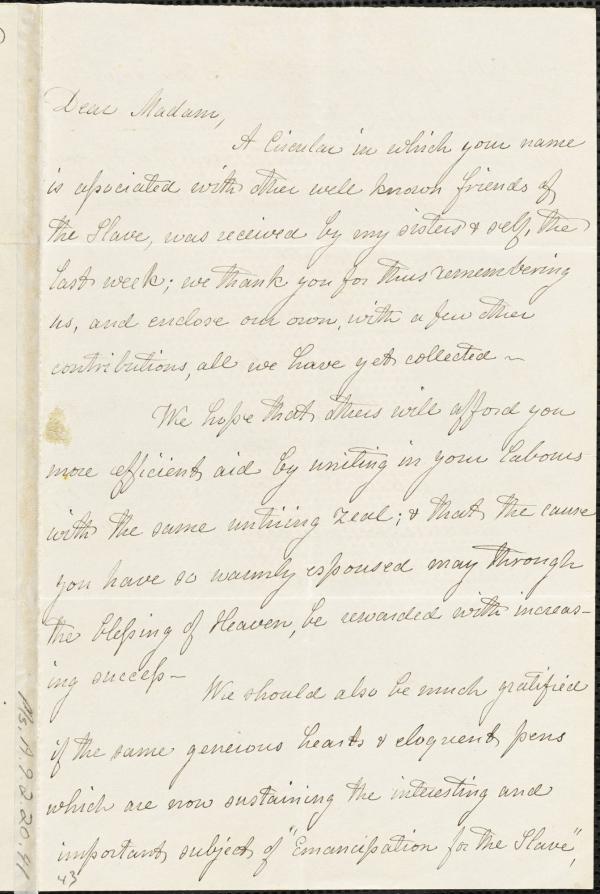 Dear Madam,
A Circular in which your name
is associated with other well known friends of
the Slave, was received by my sisters & self, the
last week; we thank you for thus remembering
us, and enclose our own, with a few other
contributions, all we have yet collected ~
We hope that others will afford you
more efficient aid by uniting in your labours
with the same untiring zeal; & that the cause
you have so warmly espoused may through
the blessing of Heaven, be rewarded with increas-
ing success-
We should also be much gratified
if the same generous hearts & eloquent pens
which are now sustaining the interesting and
important subject of "Emancipation for the Slave",
43
Ms. A.9.2.20.41